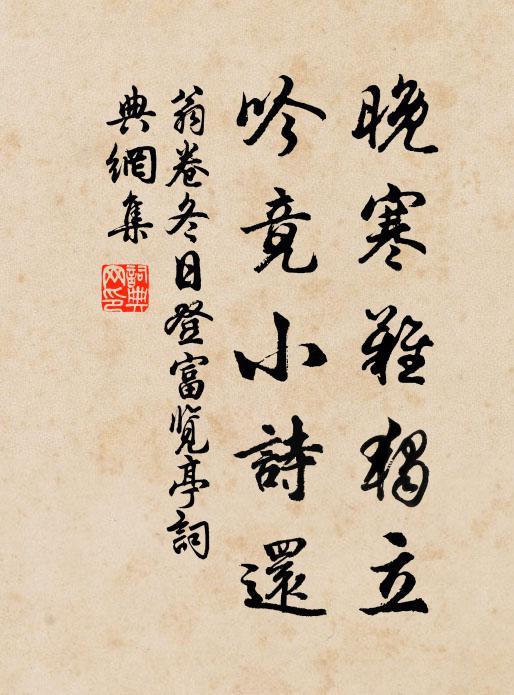 晚寒難獨立
吟竟小詩還
翁卷冬日登富覽亭詞
典網集
詞典網印